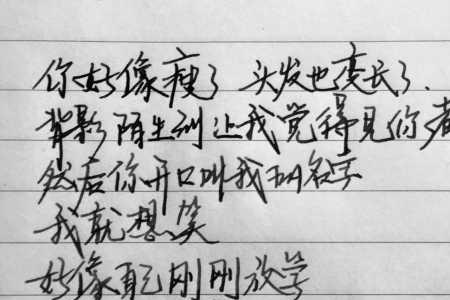 你好像瘦了 头发也变长了.
背影陌生到让我觉得见你都
然后你开口叫我的名字
我就想笑
好像自己刚刚放学